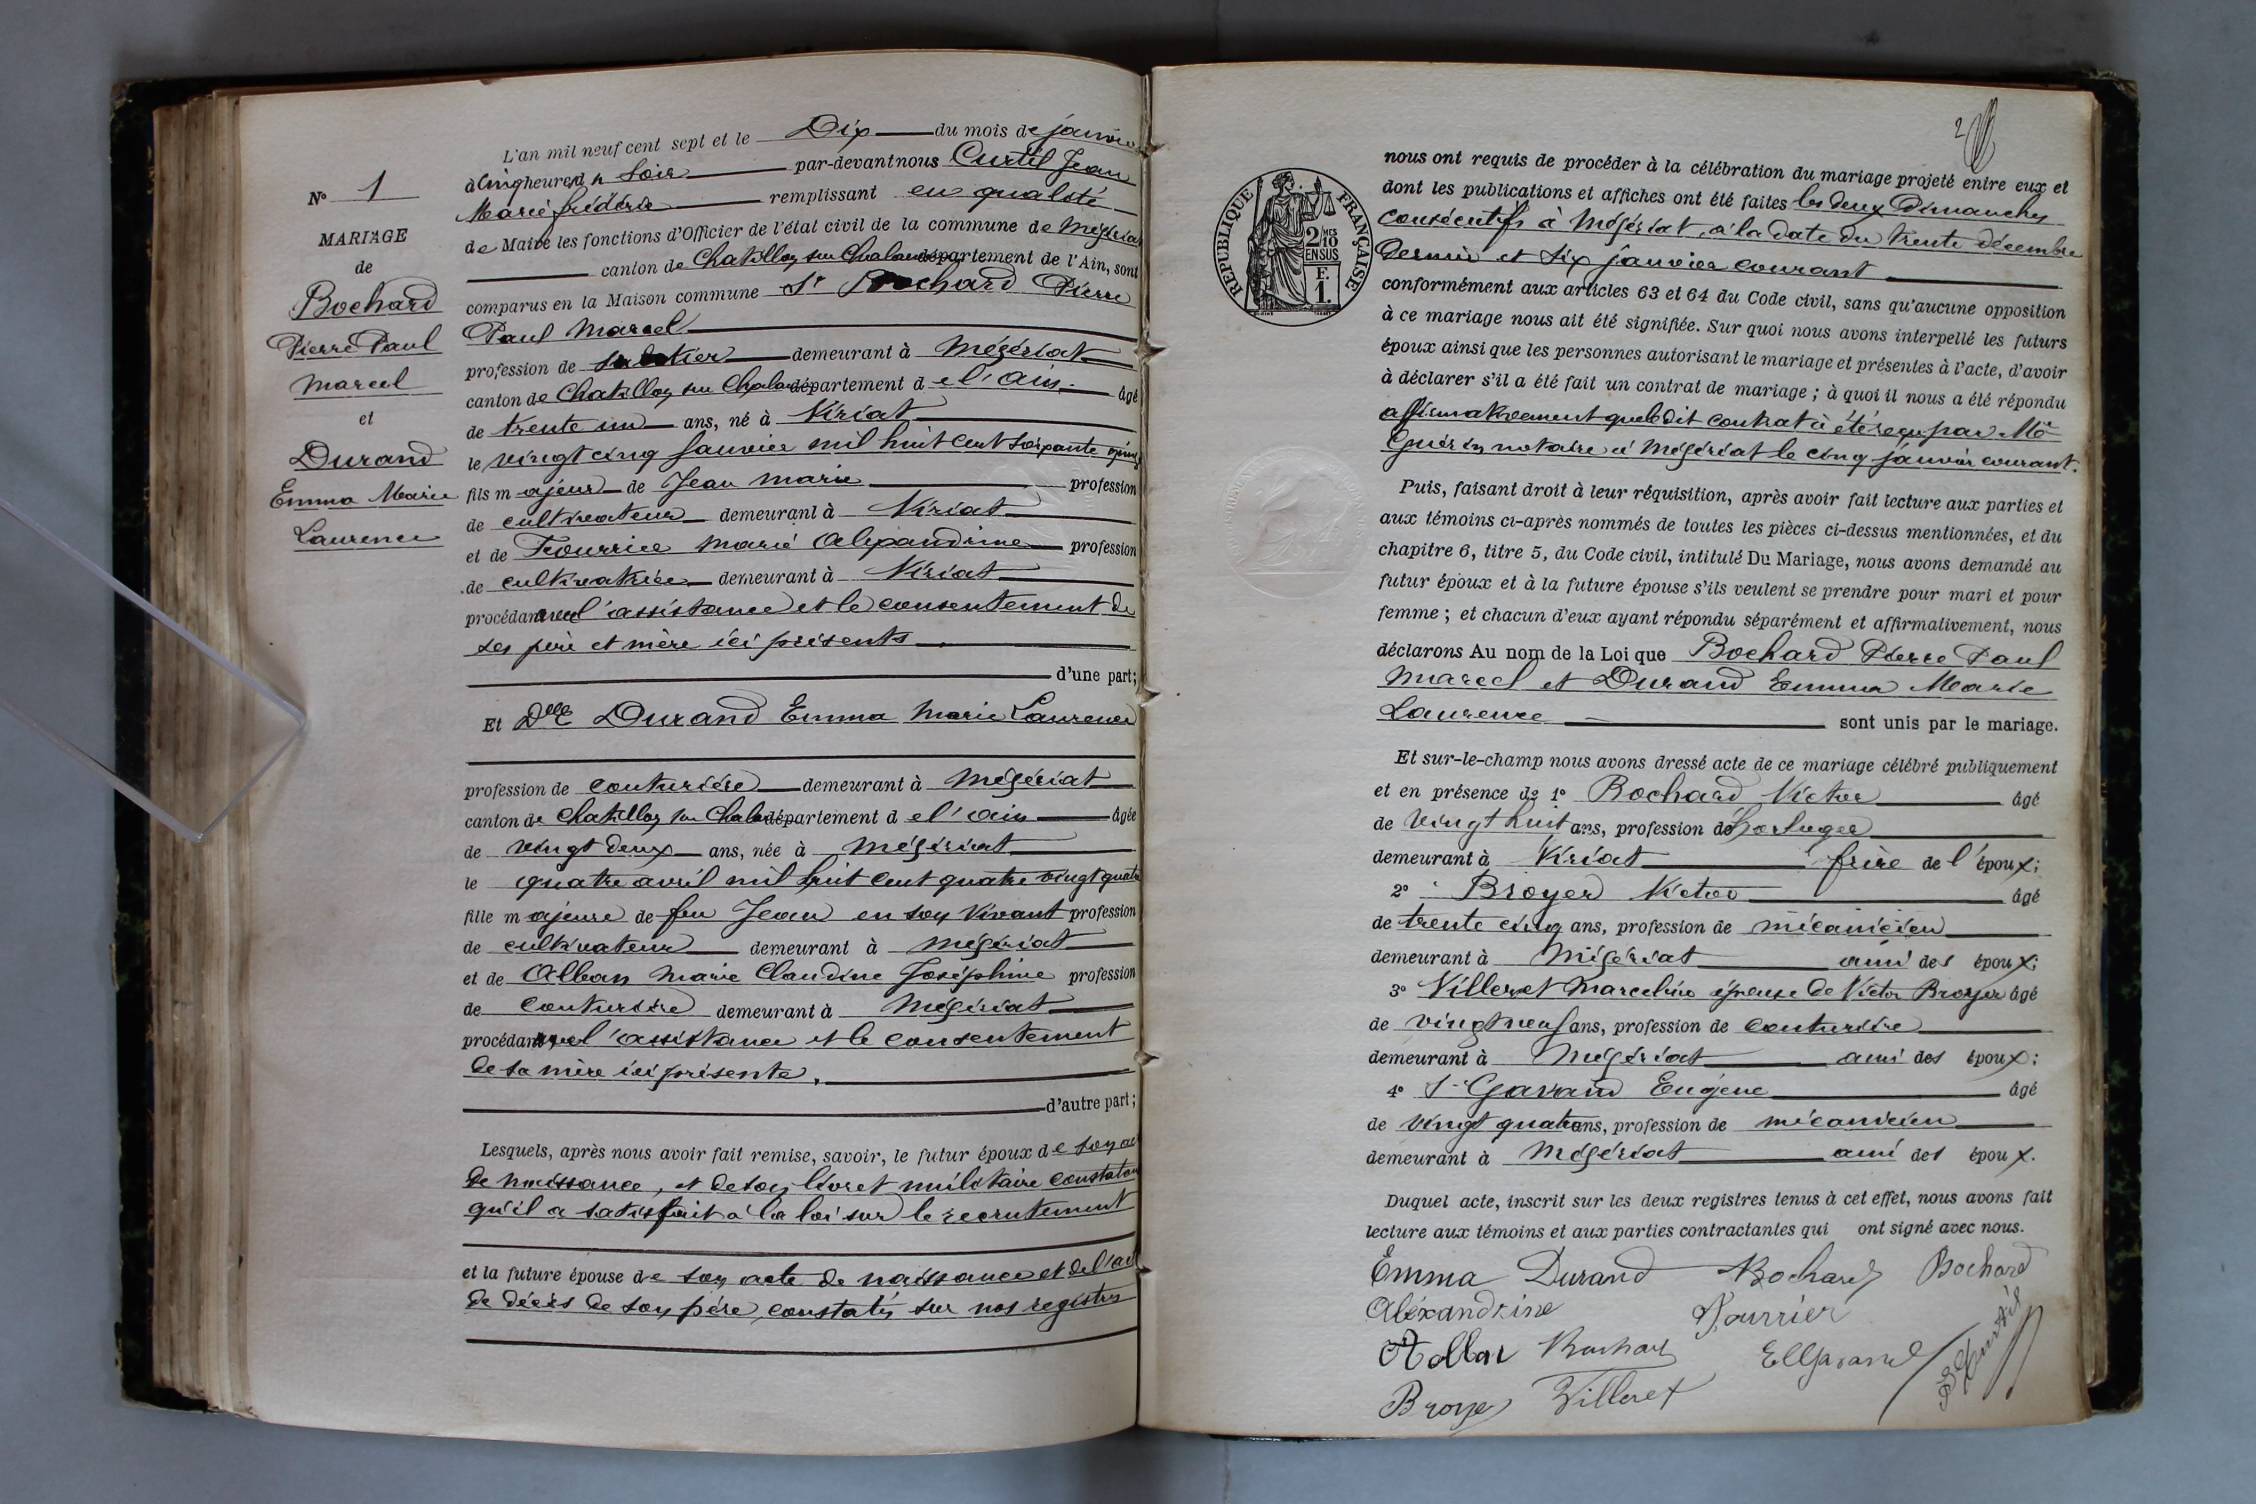 N° 1
MARIAGE
de
Bochard
Pierre Paul
Marcel
et
Durand
Emma Marie
Laurence
L'an mil neuf cent sept et le Dix du mois de janvier
à cinq heures du soir par-devant nous Curtil Jean
Marie frédéric remplissant en qualité
de Maire les fonctions d'Officier de l'état civil de la commune de Mézériat
canton de Chatillon sur Chalaronne département de l'Ain, sont
comparus en la Maison commune Sr Bochard Pierre
Paul Marcel
profession de demeurant à Mézériat
canton de Chatillon sur Chalar département de l'Ain. âgé
de trente un ans, né à Viriat
le vingt cinq Janvier mil huit cent soixante
fils majeur de Jean Marie profession
de cultivateur demeurant à Viriat
et de Fourrier Marie Alexandrine profession
de cultivatrice demeurant à Viriat
procédant avec l'assistance et le consentement de
ses père et mère ici présents
d'une part;
Et Dlle Durand Emma Marie Laurence
profession de couturière demeurant à Mézériat
canton de Chatillon sur Chalar département de l'ain âgée
de vingt deux ans, née à Mézériat
le quatre avril mil huit cent quatre vingt quatre
fille majeure de feu Jean en son vivant profession
de cultivateur demeurant à Mézériat
et de Alban Marie Claudine Joséphine profession
de couturière demeurant à Mézériat
procédant avec l'assistance et le consentement
de sa mère ici présente.
d'autre part;
Lesquels, après nous avoir fait remise, savoir, le futur époux de son acte
de naissance, et de son livret militaire constatant
qu'il a satisfait à la loi sur le recrutement
et la future épouse de son acte de naissance et de l'acte
de décès de son père, constatés sur nos registres
2
REPUBLIQUE FRANÇAISE
2/10 MES
EN SUS
F.
1.
nous ont requis de procéder à la célébration du mariage projeté entre eux et
dont les publications et affiches ont été faites les deux Dimanches
consécutifs à Mézériat, à la date du trente décembre
dernier et six janvier courant
conformément aux articles 63 et 64 du Code civil, sans qu'aucune opposition
à ce mariage nous ait été signifiée. Sur quoi nous avons interpellé les futurs
époux ainsi que les personnes autorisant le mariage et présentes à l'acte, d'avoir
à déclarer s'il a été fait un contrat de mariage ; à quoi il nous a été répondu
affirmativement que ledit contrat a été reçu par Me
Guérin notaire à Mézériat le cinq janvier courant.
Puis, faisant droit à leur réquisition, après avoir fait lecture aux parties et
aux témoins ci-après nommés de toutes les pièces ci-dessus mentionnées, et du
chapitre 6, titre 5, du Code civil, intitulé Du Mariage, nous avons demandé au
futur époux et à la future épouse s'ils veulent se prendre pour mari et pour
femme ; et chacun d'eux ayant répondu séparément et affirmativement, nous
déclarons Au nom de la Loi que Bochard Pierre Paul
Marcel et Durand Emma Marie
Laurence sont unis par le mariage.
Et sur-le-champ nous avons dressé acte de ce mariage célébré publiquement
et en présence de 1° Bochard Victor âgé
de vingt huit ans, profession de horloger
demeurant à Viriat frère de l'époux;
2° Broyer Victor âgé
de trente cinq ans, profession de mécanicien
demeurant à Mézériat ami des époux;
3° Villeret Marceline épouse de Victor Broyer âgé
de vingt neuf ans, profession de couturière
demeurant à Mézériat ami des époux;
4° Sr Gavand Eugène âgé
de vingt quatre ans, profession de mécanicien
demeurant à Mézériat ami des époux.
Duquel acte, inscrit sur les deux registres tenus à cet effet, nous avons fait
lecture aux témoins et aux parties contractantes qui ont signé avec nous.
Emma Durand Bochard Bochard
Aléxandrine Fourrier
Bochard E Gavand
Broyer Villeret
Curtil